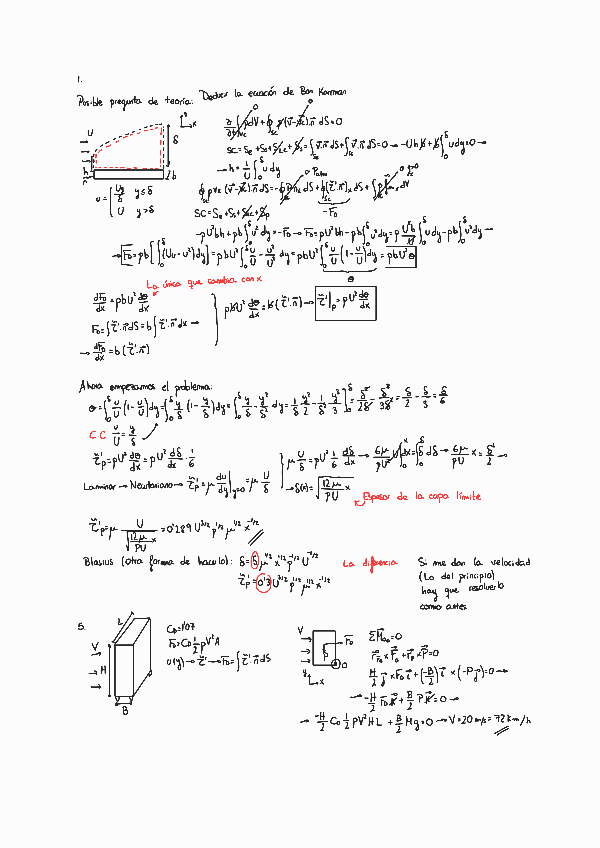 1.
Posible pregunta de teoría: Deducir la ecuación de Bon Karman
∂/∂t ∫ ρdV + ∮ ρ(v̄-v̄c).n̄ dS=0
SC = Se + Ss + SLc + Ss = ∫ v̄.n̄ dS + ∫ v̄.n̄ dS = 0 → -Uhb + b∫ u dy = 0 →
→ h = 1/U ∫ u dy
u = { Uy/δ y≤δ
U y>δ
SC = Se + Ss + SLc + Sp
-F_D
-ρU²bh + ρb∫ u² dy = -F_D → F_D = ρU²bh - ρb∫ u² dy = ρU²b/U ∫ u dy - ρb∫ u² dy →
→ F_D = ρb[∫ (Uu - u²) dy] = ρbU² ∫ u/U - u²/U² dy = ρbU² ∫ u/U (1 - u/U) dy = ρbU² θ
θ
La única que cambia con x
dF_D/dx = ρbU² dθ/dx
F_D = ∫ τ̄'.n̄ dS = b∫ τ̄'.n̄ dx →
→ dF_D/dx = b(τ̄'.n̄)
ρbU² dθ/dx = b(τ̄'.n̄) → τ̄'|p = ρU² dθ/dx
Ahora empezamos el problema:
θ = ∫ u/U (1 - u/U) dy = ∫ y/δ (1 - y/δ) dy = ∫ y/δ - y²/δ² dy = 1/δ y²/2 - 1/δ² y³/3 |₀^δ = δ²/2δ - δ³/3δ² = δ/2 - δ/3 = δ/6
C.C u/U = y/δ
τ̄'p = ρU² dθ/dx = ρU² dδ/dx · 1/6
Laminar → Newtoniano → τ̄'p = μ du/dy |y=0 = μ U/δ
μ U/δ = ρU² 1/6 dδ/dx → 6μ/ρU² U∫dx = ∫ δ dδ → 6μ/ρU x = δ²/2 →
→ δ(x) = √(12μx/ρU)
Espesor de la capa límite
τ̄'p = μ U/√(12μx/ρU) = 0'289 U^3/2 ρ^1/2 μ^1/2 x^-1/2
Blasius (otra forma de hacerlo): δ = 5 μ^1/2 x^1/2 ρ^-1/2 U^-1/2
τ̄'p = 0'3 U^3/2 ρ^1/2 μ^1/2 x^-1/2
La diferencia
Si me dan la velocidad
(Lo del principio)
hay que resolverlo
como antes
5.
C_D = 1'07
F_D = C_D 1/2 ρV²A
u(y) → τ̄' → F_D = ∫ τ̄'.n̄ dS
ΣM̄o = 0
r̄F_D × F̄_D + r̄p × P̄ = 0
H/2 j̄ × F_D ī + (-B/2) ī × (-P j̄) = 0 →
→ -H/2 F_D k̄ + B/2 P k̄ = 0 →
→ -H/2 C_D 1/2 ρV²HL + B/2 Mg = 0 → V = 20 m/s = 72 km/h